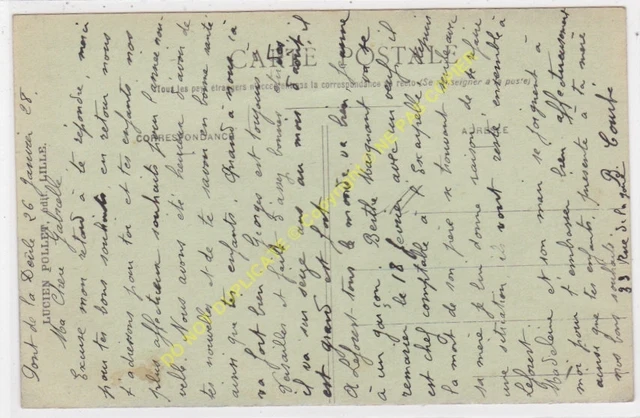 CARTE POSTALE
Tous les pays étrangers n'acceptent pas la correspondance au recto (Se renseigner à la poste)
CORRESPONDANCE
ADRESSE
LUCIEN POLLET, édit. LILLE.
DO NOT DUPLICATE
Pont de la Deûle 26 Janvier 28
Ma Chère Gabrielle
Excuse mon retard à te répondre, merci
pour tes bons souhaits en retour nous
t'adressons pour toi et tes enfants nos
plus affectueux souhaits pour l'année nou-
velle. Nous avons été heureux d'avoir de
tes nouvelles et de te savoir en bonne santé
ainsi que tes enfants. Quand à nous ça
va fort bien Georges est toujours à
Versailles et Paul
il va sur seize ans au mois d'août il
est grand et fort
A Leforest tous le monde va bien
à un garçon Berthe Masquart va se
remarier le 18 février avec un veuf il
est chef comptable à l'Escarpelle depuis
la mort de son père se trouvant solitaire
sa mère je lui donne raison de se faire
une situation ils vont resté ensemble à
Leforest
Madeleine et son mari se joignent à
moi pour t'embrasser bien affectueusement
ainsi que tes enfants, présente à ta mère
nos bons souhaits
33 Rue de la gare